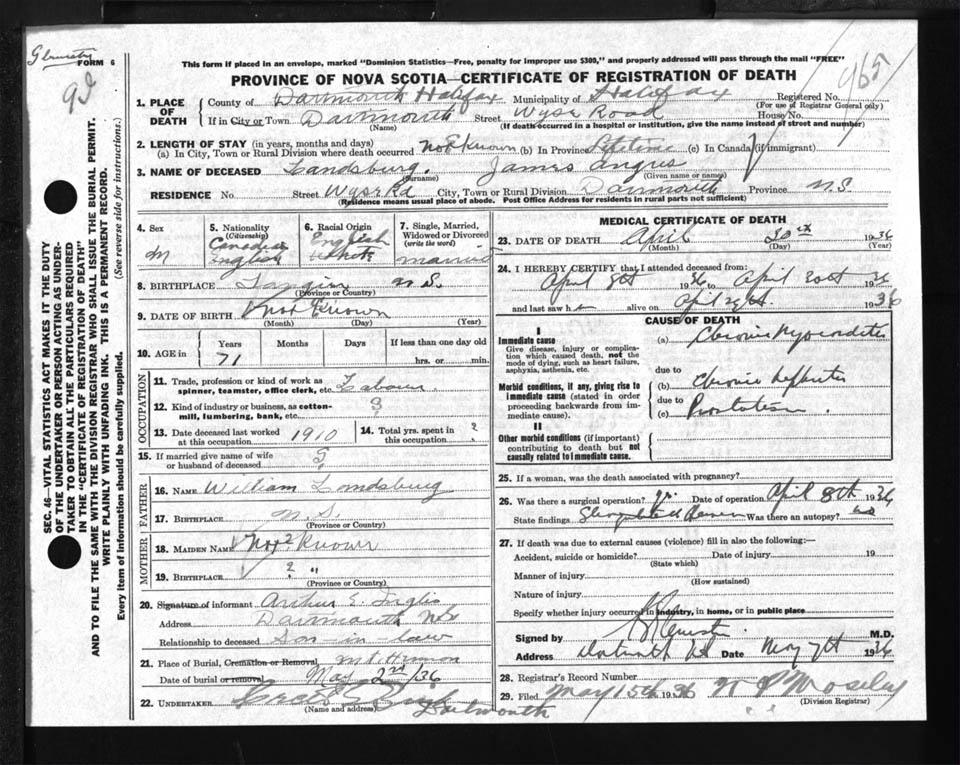 FORM 6
This form if placed in an envelope, marked "Dominion Statistics—Free, penalty for improper use $300," and properly addressed will pass through the mail "FREE"
PROVINCE OF NOVA SCOTIA—CERTIFICATE OF REGISTRATION OF DEATH
465
SEC. 46—VITAL STATISTICS ACT MAKES IT THE DUTY
OF THE UNDERTAKER OR PERSON ACTING AS UNDER-
TAKER TO OBTAIN ALL THE PARTICULARS REQUIRED
IN THE "CERTIFICATE OF REGISTRATION OF DEATH"
AND TO FILE THE SAME WITH THE DIVISION REGISTRAR WHO SHALL ISSUE THE BURIAL PERMIT.
WRITE PLAINLY WITH UNFADING INK. THIS IS A PERMANENT RECORD.
Every item of information should be carefully supplied. (See reverse side for instructions.)
1. PLACE OF DEATH
County of Dartmouth Halifax Municipality of Halifax Registered No.
(For use of Registrar General only)
If in City or Town Dartmouth Street Wyse Road House No.
(Name) (If death occurred in a hospital or institution, give the name instead of street and number)
2. LENGTH OF STAY (in years, months and days)
(a) In City, Town or Rural Division where death occurred Not Known (b) In Province Lifetime (c) In Canada (if immigrant)
3. NAME OF DECEASED Landsburg, James Angus
(Surname) (Given name or names)
RESIDENCE No. Street Wyse Rd City, Town or Rural Division Dartmouth Province N.S.
(Residence means usual place of abode. Post Office Address for residents in rural parts not sufficient)
4. Sex M
5. Nationality (Citizenship) Canadian English
6. Racial Origin English White
7. Single, Married, Widowed or Divorced (write the word) married
8. BIRTHPLACE Tangier N.S.
(Province or Country)
9. DATE OF BIRTH Not Known
(Month) (Day) (Year)
10. AGE in Years Months Days If less than one day old
71 hrs. or min.
OCCUPATION
11. Trade, profession or kind of work as spinner, teamster, office clerk, etc. Labour.
12. Kind of industry or business, as cotton-mill, lumbering, bank, etc. ?
13. Date deceased last worked at this occupation 1910
14. Total yrs. spent in this occupation ?
15. If married give name of wife or husband of deceased ?
FATHER
16. NAME William Landsburg
17. BIRTHPLACE N.S.
(Province or Country)
MOTHER
18. MAIDEN NAME Not ? Known
19. BIRTHPLACE ? "
(Province or Country)
20. Signature of informant Arthur E. Inglis
Address Dartmouth N.S.
Relationship to deceased Son-in-law
21. Place of Burial, Cremation or Removal, Mt Hermon
Date of burial or removal May 2nd/36
22. UNDERTAKER Dartmouth
(Name and address)
MEDICAL CERTIFICATE OF DEATH
23. DATE OF DEATH April 30th 1936
(Month) (Day) (Year)
24. I HEREBY CERTIFY that I attended deceased from:
April 8th 1936 to April 30th 1936
and last saw h alive on April 1936
CAUSE OF DEATH
I
Immediate cause
Give disease, injury or complica-
tion which caused death, not the
mode of dying, such as heart failure,
asphyxia, asthenia, etc.
Morbid conditions, if any, giving rise to
immediate cause (stated in order
proceeding backwards from im-
mediate cause).
II
Other morbid conditions (if important)
contributing to death but not
causally related to immediate cause.
(a) Chronic Myocarditis
due to
(b) Chronic Nephritis
due to
(c)
25. If a woman, was the death associated with pregnancy?
26. Was there a surgical operation? yes. Date of operation April 8th 1936
State findings Was there an autopsy? no
27. If death was due to external causes (violence) fill in also the following:—
Accident, suicide or homicide? Date of injury 19
(State which)
Manner of injury
(How sustained)
Nature of injury
Specify whether injury occurred in industry, in home, or in public place
Signed by M.D.
Address Dartmouth NS Date May 7th 1936
28. Registrar's Record Number
29. Filed May 15th 1936 Moseley
(Division Registrar)